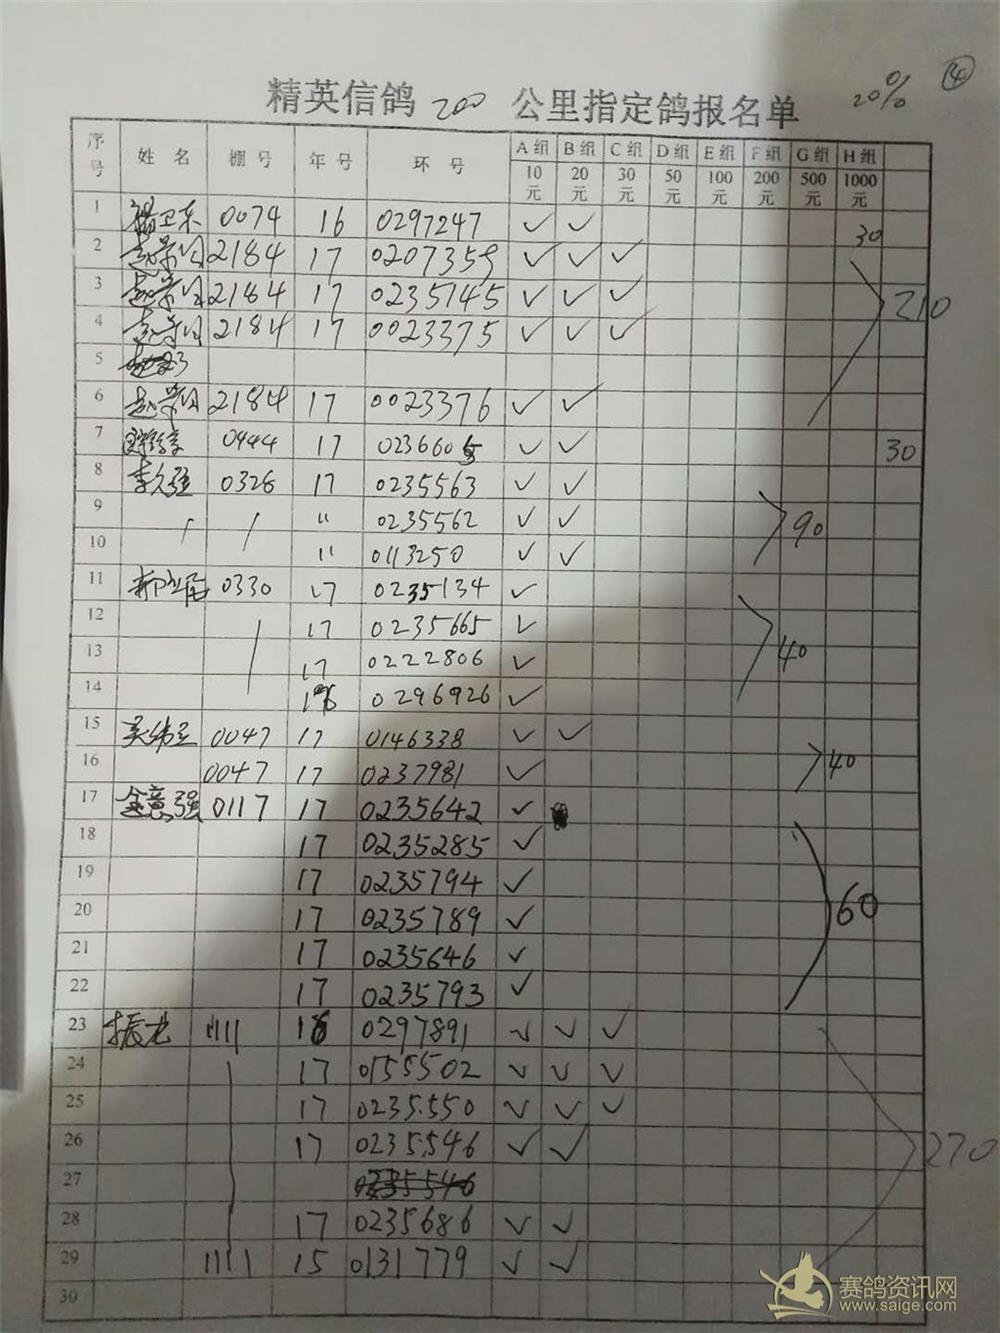 精英信鸽 200 公里指定鸽报名单 20% ④
序号 姓名 棚号 年号 环号 A组 B组 C组 D组 E组 F组 G组 H组
10元 20元 30元 50元 100元 200元 500元 1000元
1 杨卫东 0074 16 0297247 ✓ ✓ 30
2 2184 17 0207359 ✓ ✓ ✓
3 2184 17 0235145 ✓ ✓ ✓ 210
4 2184 17 0023375 ✓ ✓ ✓
5
6 2184 17 0023376 ✓ ✓
7 0444 17 0236605 ✓ ✓ 30
8 李久强 0328 17 0235563 ✓ ✓
9 〃 0235562 ✓ ✓ 90
10 〃 0113250 ✓ ✓
11 0330 17 0235134 ✓
12 17 0235665 ✓
13 17 0222806 ✓ 40
14 16 0296926 ✓
15 0047 17 0146338 ✓ ✓
16 0047 17 0237981 ✓ 40
17 金意强 0117 17 0235642 ✓
18 17 0235285 ✓
19 17 0235794 ✓
20 17 0235789 ✓ 60
21 17 0235646 ✓
22 17 0235793 ✓
23 振龙 1111 16 0297891 ✓ ✓ ✓
24 17 0155502 ✓ ✓ ✓
25 17 0235550 ✓ ✓ ✓
26 17 0235546 ✓ ✓ 270
27 0235546
28 17 0235686 ✓ ✓
29 1111 15 0131779 ✓ ✓
30
赛鸽资讯网
www.saige.com